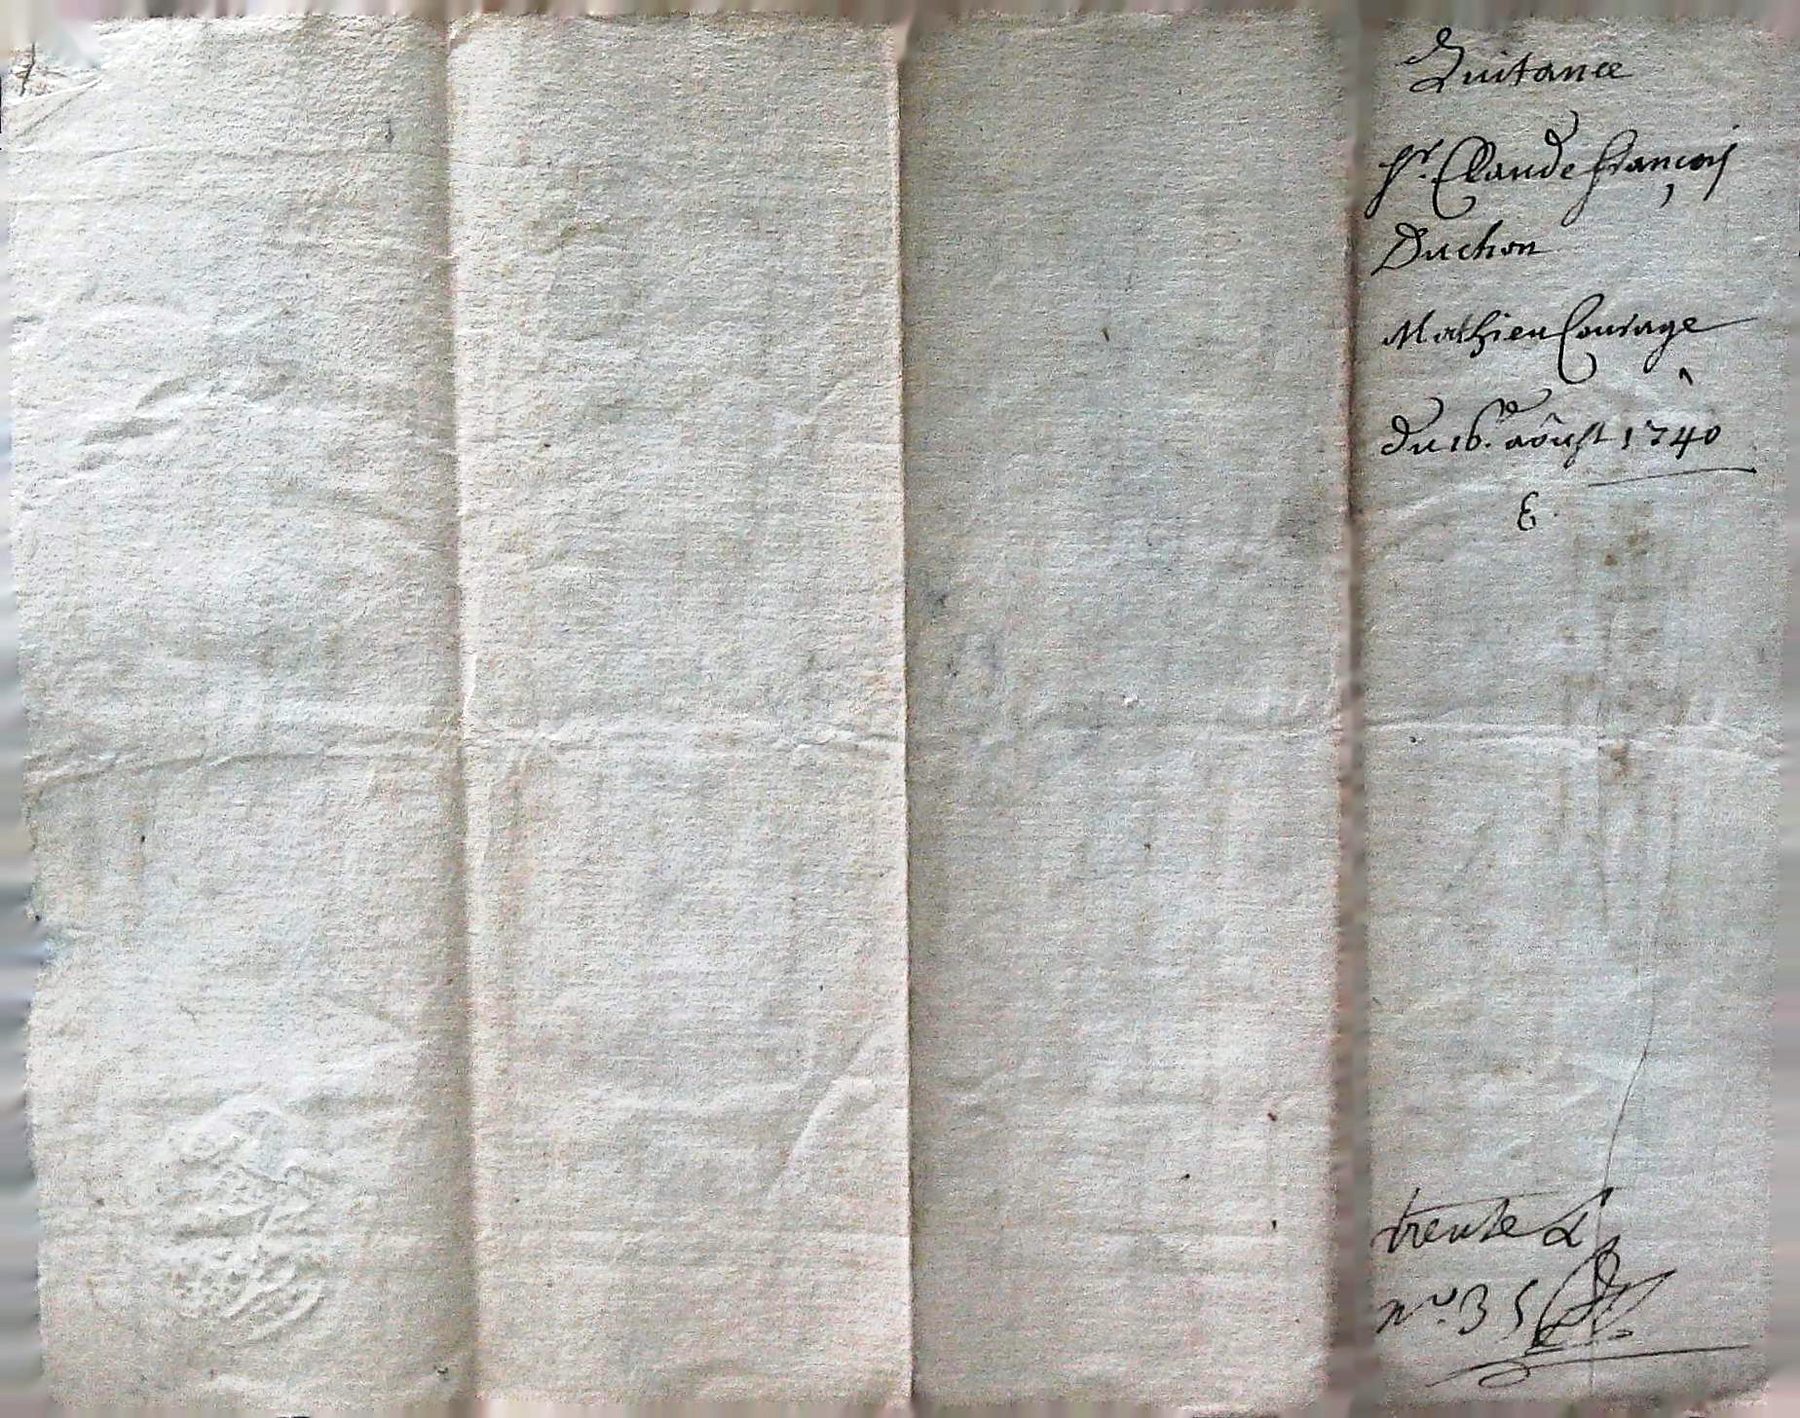 Quitance
Sr. Claude François
Duchon
Mathieu Courage
du 16. aôust 1740
E.
trente
no. 35